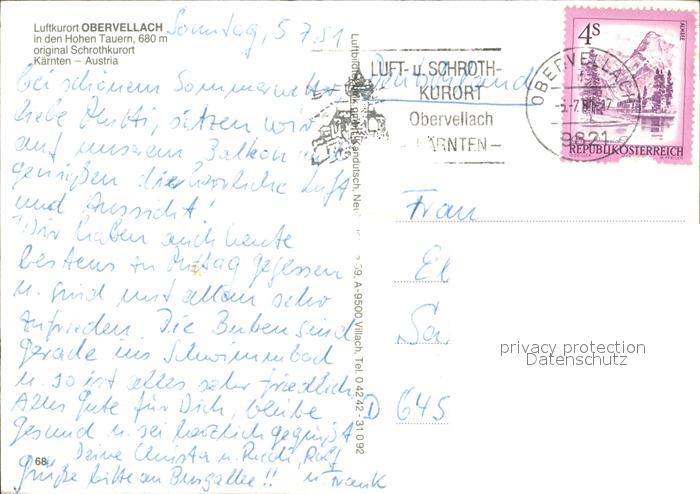 Luftkurort OBERVELLACH
in den Hohen Tauern, 680 m
original Schrothkurort
Kärnten – Austria
Sonntag, 5.7.81
Bei schönem Sommerwetter,
liebe Mutti, sitzen wir
auf unserem Balkon u.
genießen die herrliche Luft
und Aussicht!
Wir haben auch heute
bestens zu Mittag gegessen
u. sind mit allem sehr
zufrieden. Die Buben sind
gerade im Schwimmbad
u. so ist alles sehr friedlich.
Alles Gute für Dich, bleibe
gesund u. sei herzlich gegrüßt
Deine Christa u. Ruedi, Ralf
u Frank
Grüße bitte an !!
68
A-9500 Villach, Tel. 0 42 42 - 31 0 92
LUFT- u. SCHROTH-
KURORT
Obervellach
– KÄRNTEN –
OBERVELLACH
9821
4S
REPUBLIK ÖSTERREICH
Frau
El
Sa
D 645
privacy protection
Datenschutz